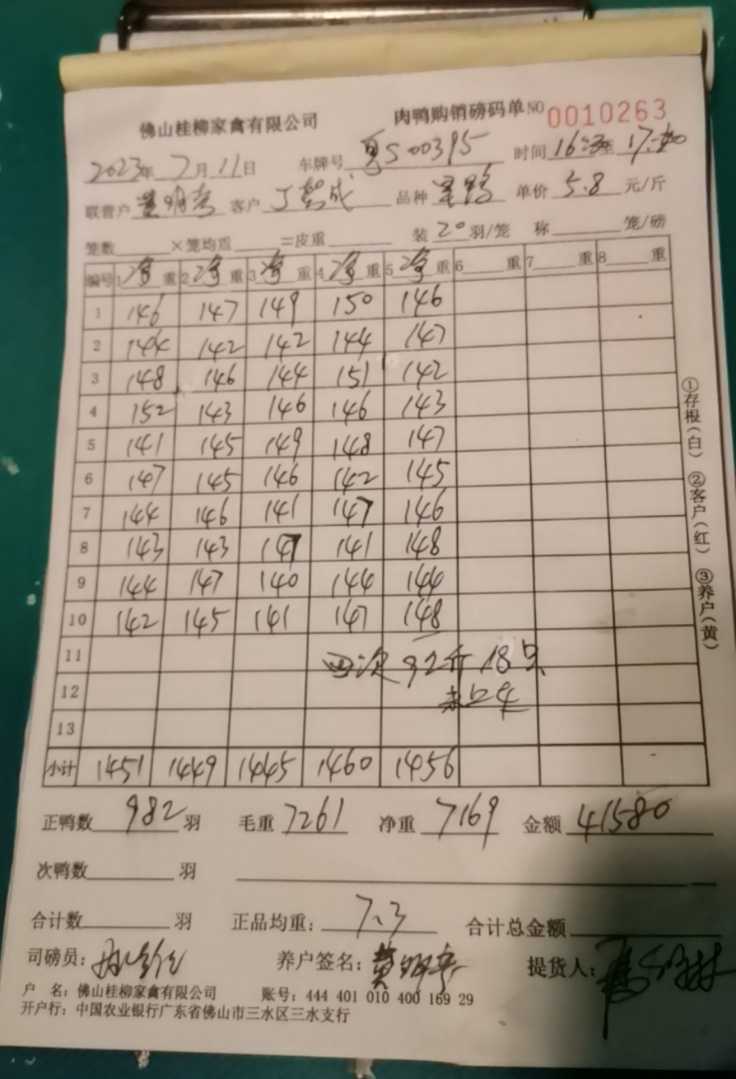 佛山桂柳家禽有限公司 肉鸭购销磅码单 NO 0010263
2023年 7月 11日 车牌号 粤S00395 时间 16:30 至 17:
联营户 黄 客户 丁 成 品种 鸭 单价 5.8 元/斤
笼数 ×笼均重 =皮重 装 20 羽/笼 称 笼/磅
编号 1 净 重 2 净 重 3 净 重 4 净 重 5 净 重 6 重 7 重 8 重
1 146 147 149 150 146
2 144 142 142 144 147
3 148 146 144 151 142
4 152 143 146 146 143
5 141 145 149 148 147
6 147 145 146 142 145
7 144 146 141 147 146
8 143 143 147 141 148
9 144 147 140 144 144
10 142 145 141 147 148
11 四次 92斤 18只
12
13
小计 1451 1449 1445 1460 1456
正鸭数 982 羽 毛重 7261 净重 7169 金额 41580
次鸭数 羽
合计数 羽 正品均重: 7.3 合计总金额
司磅员: 养户签名: 黄 提货人:
户 名: 佛山桂柳家禽有限公司 账号: 444 401 010 400 169 29
开户行: 中国农业银行广东省佛山市三水区三水支行
①存根(白) ②客户(红) ③养户(黄)